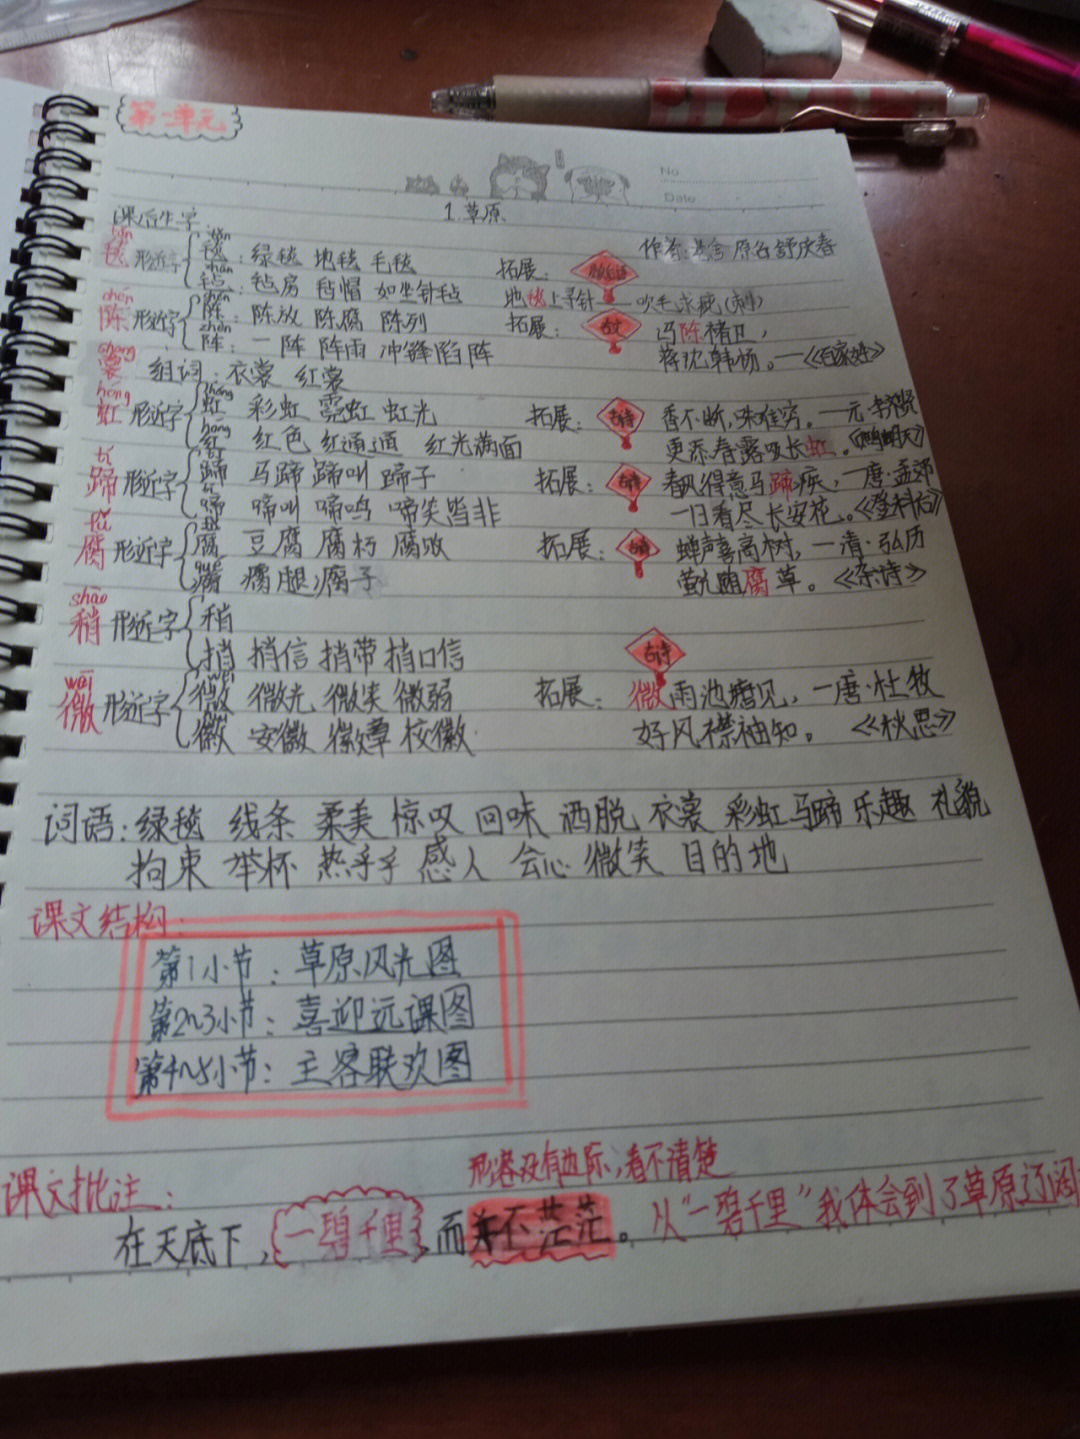 第一单元
No.
Date
1.草原
课后生字
作者:老舍 原名舒庆春
毯 形近字 毯:绿毯 地毯 毛毯 拓展:
毡:毡房 毡帽 如坐针毡 地毯上寻针——吹毛求疵(刺)
陈 chén 形近字 陈:陈放 陈腐 陈列 拓展: 冯陈褚卫,
zhèn 阵:一阵 阵雨 冲锋陷阵 蒋沈韩杨。—《百家姓》
裳 组词:衣裳 红裳
虹 hóng 形近字 虹 彩虹 霓虹 虹光 拓展: 古诗 香不断,味佳穷。—元·
hóng 红 红色 红通通 红光满面 更添春露吸长虹。
蹄 tí 形近字 蹄 马蹄 蹄叫 蹄子 拓展: 古诗 春风得意马蹄疾,—唐·孟郊
啼 啼叫 啼鸣 啼笑皆非 一日看尽长安花。《登科后》
腐 fǔ 形近字 腐 豆腐 腐朽 腐败 拓展: 古诗 蝉声喜高树,—清·弘历
qué 瘸 瘸腿 瘸子 萤光随腐草。《杂诗》
shāo
稍 形近字 稍
捎 捎信 捎带 捎口信
古诗
wēi
微 形近字 微 微光 微笑 微弱 拓展: 微雨池塘见,—唐·杜牧
徽 安徽 徽章 校徽 好风襟袖知。《秋思》
词语:绿毯 线条 柔美 惊叹 回味 洒脱 衣裳 彩虹 马蹄 乐趣 礼貌
拘束 举杯 热乎乎 感人 会心 微笑 目的地
课文结构:
第1小节:草原风光图
第2~3小节:喜迎远课图
第4~5小节:主客联欢图
形容没有边际,看不清楚
课文批注:
在天底下,一碧千里,而并不茫茫。从"一碧千里"我体会到了草原辽阔